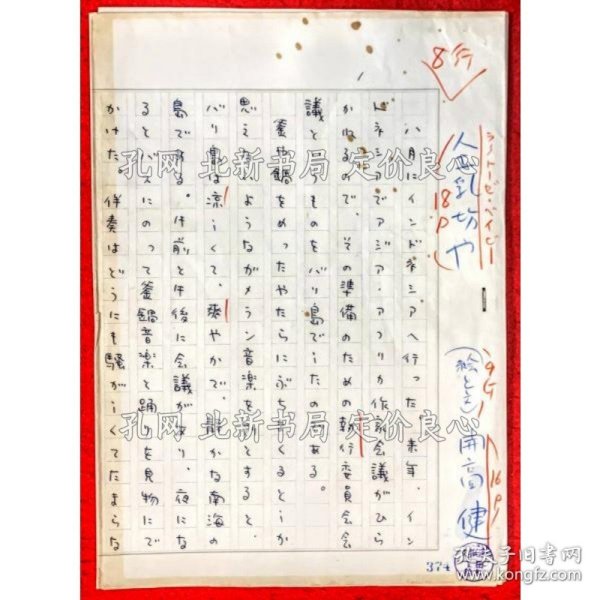 8行
人喰乳坊や
18P
ラノトーゼ・ベイビー
(絵とも)
開高 健
16P
八月にインドネシアへ行った。来年、イン
ドネシアでアジア・アフリカ作家会議がひら
かれるので、その準備のための執行委員会会
議というものをバリ島でしたのである。
釜や鍋をめったやたらにぶち
思え ようなガメラン音楽を
バリ島は涼しくて、爽やかで、静かな南海の
島である。午前と午後に会議があり、夜にな
るとバスにのって釜鍋音楽と踊りを見物にで
かけた。伴奏はどうにも騒がしくてたまらな
374
孔网 北新书局 定价良心
孔网 北新书局 定价良心
孔夫子旧书网
kongfz.com